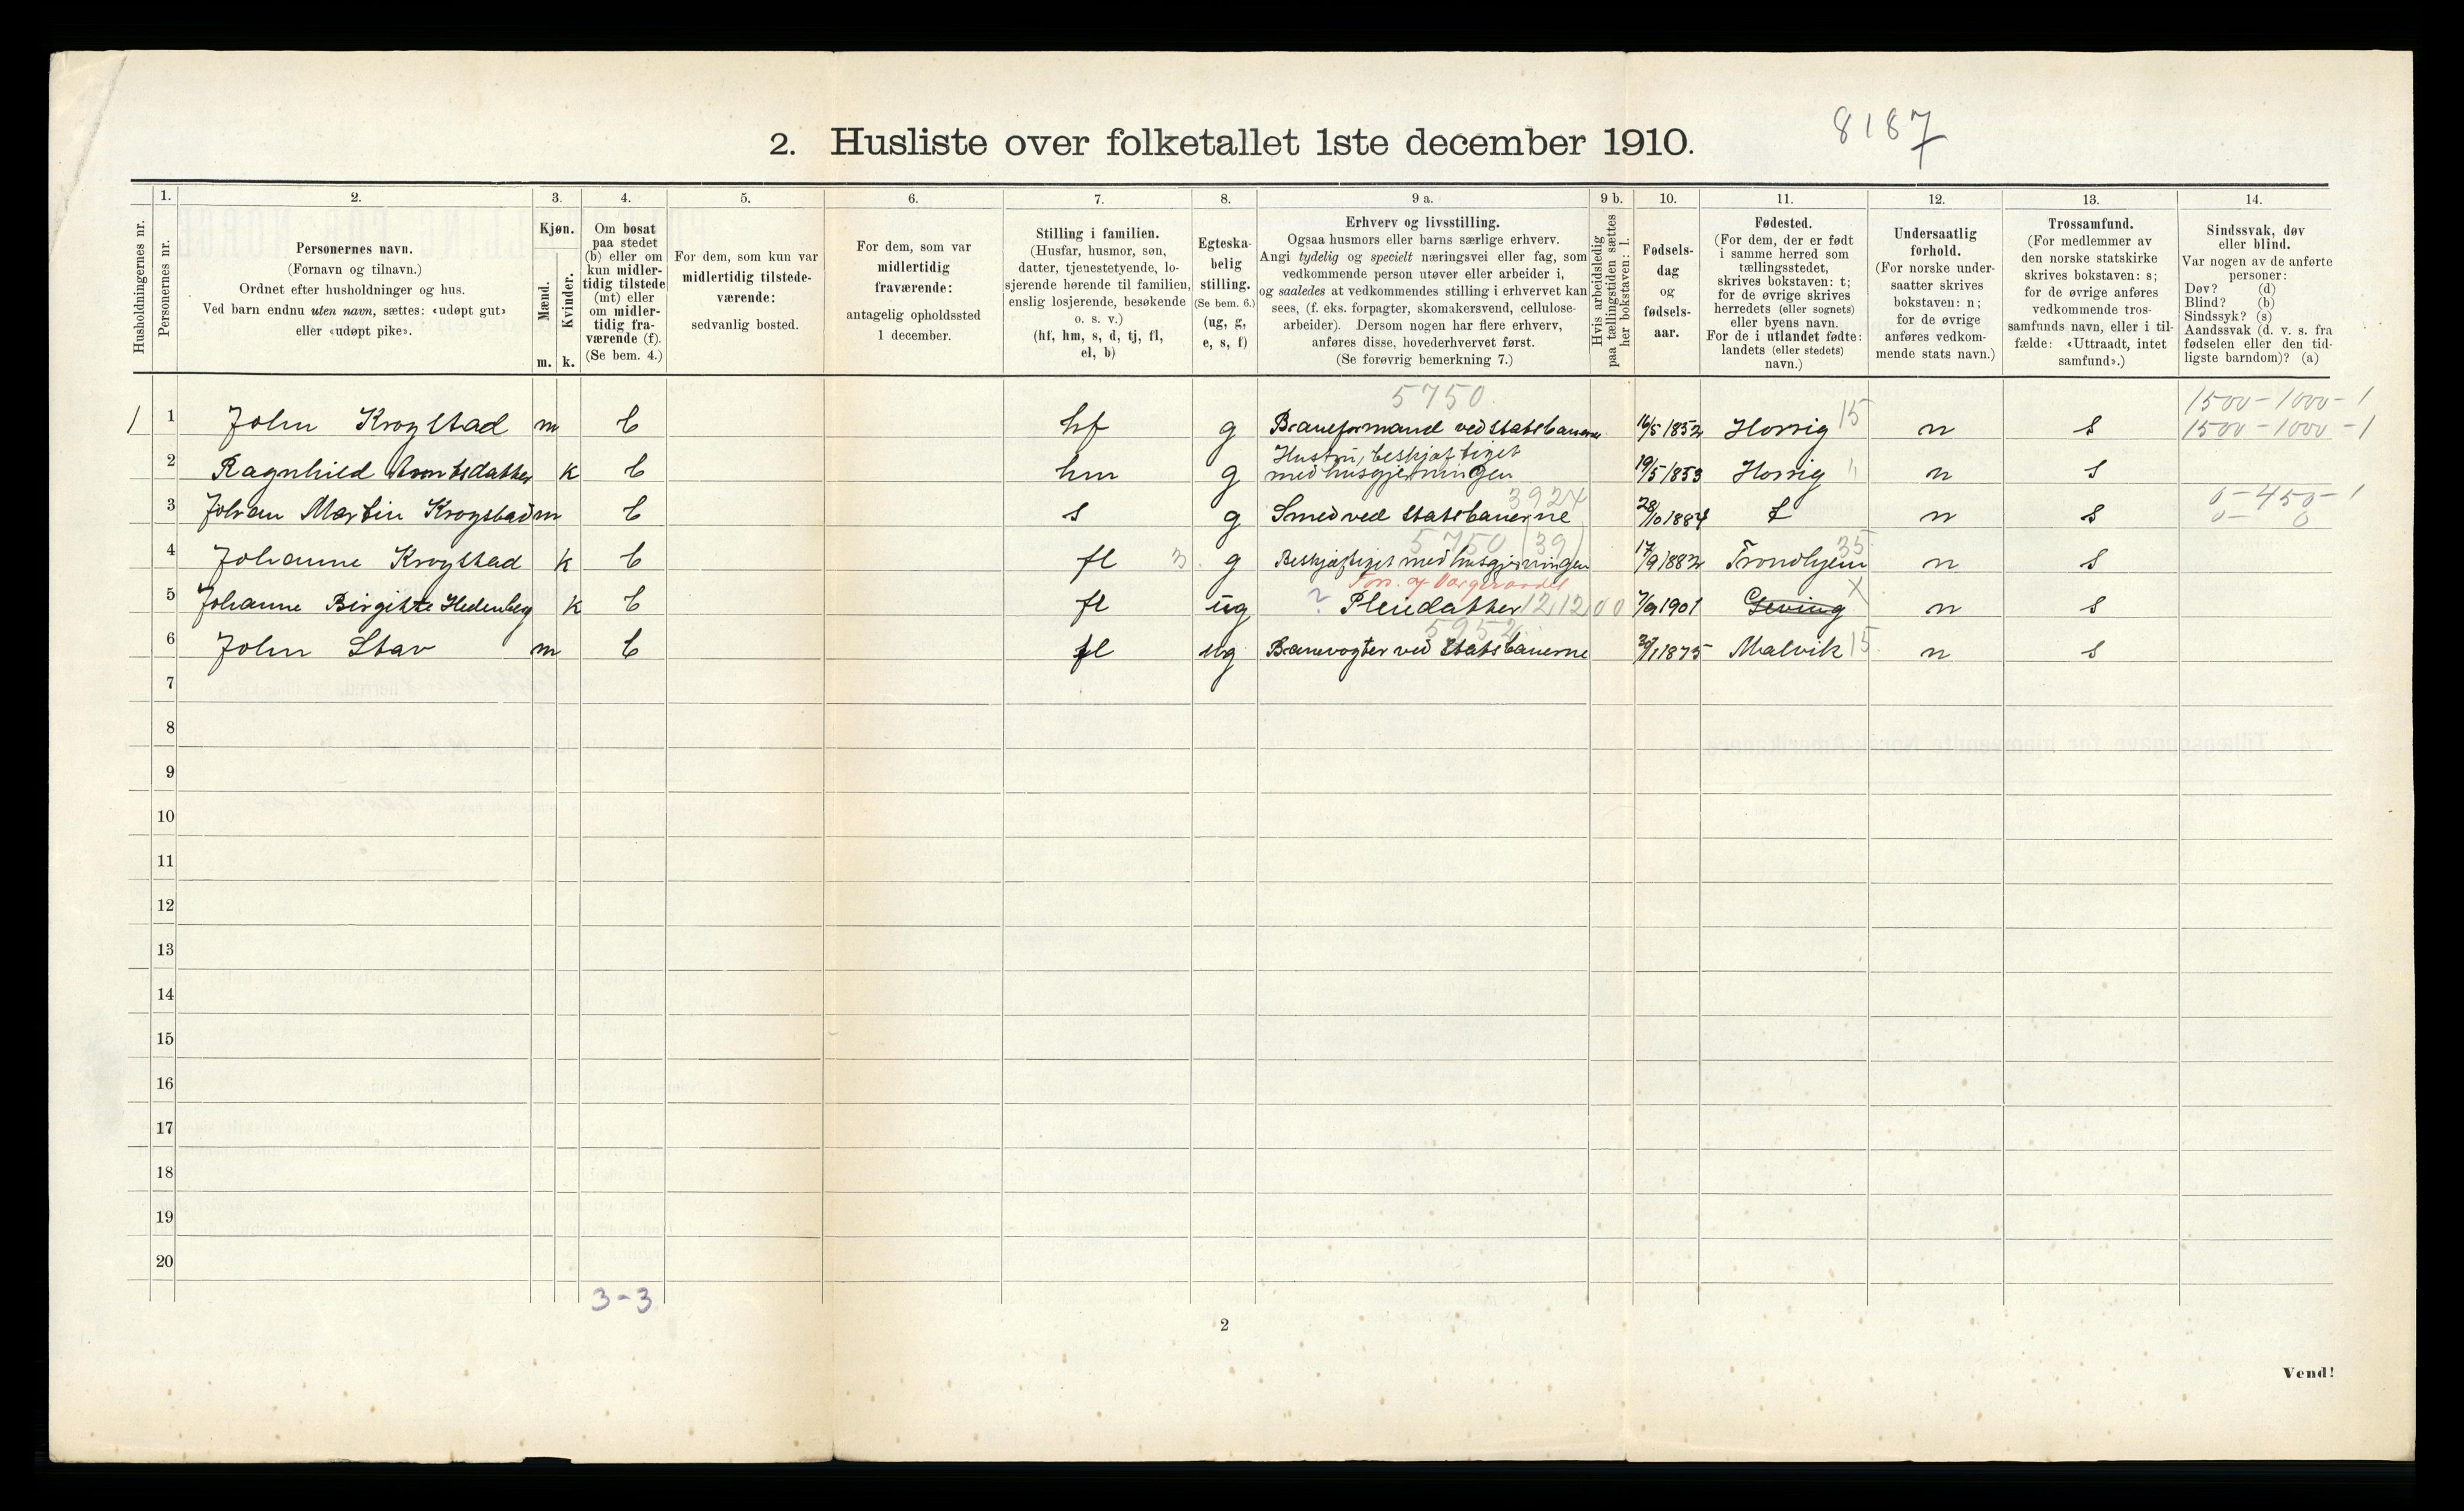 8187
2. Husliste over folketallet 1ste december 1910.
Husholdningernes nr.
1.
Personernes nr.
2.
Personernes navn.
(Fornavn og tilnavn.)
Ordnet efter husholdninger og hus.
Ved barn endnu uten navn, sættes: «udøpt gut»
eller «udøpt pike».
3.
Kjøn.
Mænd.
Kvinder.
m. k.
4.
Om bosat
paa stedet
(b) eller om
kun midler-
tidig tilstede
(mt) eller
om midler-
tidig fra-
værende (f).
(Se bem. 4.)
5.
For dem, som kun var
midlertidig tilstede-
værende:
sedvanlig bosted.
6.
For dem, som var
midlertidig
fraværende:
antagelig opholdssted
1 december.
7.
Stilling i familien.
(Husfar, husmor, søn,
datter, tjenestetyende, lo-
sjerende hørende til familien,
enslig losjerende, besøkende
o. s. v.)
(hf, hm, s, d, tj, fl,
el, b)
8.
Egteska-
belig
stilling.
(Se bem. 6.)
(ug, g,
e, s, f)
9 a.
Erhverv og livsstilling.
Ogsaa husmors eller barns særlige erhverv.
Angi tydelig og specielt næringsvei eller fag, som
vedkommende person utøver eller arbeider i,
og saaledes at vedkommendes stilling i erhvervet kan
sees, (f. eks. forpagter, skomakersvend, cellulose-
arbeider). Dersom nogen har flere erhverv,
anføres disse, hovederhvervet først.
(Se forøvrig bemerkning 7.)
9 b.
Hvis arbeidsledig
paa tællingstiden sættes
her bokstaven: l.
10.
Fødsels-
dag
og
fødsels-
aar.
11.
Fødested.
(For dem, der er født
i samme herred som
tællingsstedet,
skrives bokstaven: t;
for de øvrige skrives
herredets (eller sognets)
eller byens navn.
For de i utlandet fødte:
landets (eller stedets)
navn.)
12.
Undersaatlig
forhold.
(For norske under-
saatter skrives
bokstaven: n;
for de øvrige
anføres vedkom-
mende stats navn.)
13.
Trossamfund.
(For medlemmer av
den norske statskirke
skrives bokstaven: s;
for de øvrige anføres
vedkommende tros-
samfunds navn, eller i til-
fælde: «Uttraadt, intet
samfund».)
14.
Sindssvak, døv
eller blind.
Var nogen av de anførte
personer:
Døv? (d)
Blind? (b)
Sindssyk? (s)
Aandssvak (d. v. s. fra
fødselen eller den tid-
ligste barndom)? (a)
5750 1500-1000-1
1 1 John Krogstad m b hf g Baneformand ved statsbanerne 16/5 1852 Horrig 15 n s 1500-1000-1
Hustru, beskjæftiget
2 Ragnhild Arntsdatter k b hm g med husgjerningen 19/5 1853 Horrig " n s
3924 0-450-1
3 Johan Martin Krogstad m b s g Smed ved statsbanerne 28/10 1884 t n s 0- 0
5750 (39)
4 Johanne Krogstad k b fl 3 g Beskjæftiget med husgjerningen 17/9 1882 Trondhjem 35 n s
5 Johanne Birgitte Hedenberg k b fl ug ? Pleiedatter 121200 7/9 1901 Geving X n s
5952
6 John Stav m b fl ug Banevogter ved statsbanerne 1875 Malvik 15 n s
7
8
9
10
11
12
13
14
15
16
17
18
19
20
3-3
2
Vend!